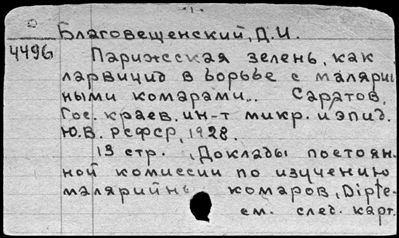 Благовещенский, Д.И.
4496
Парижская зелень, как
ларвицид в борьбе с малярий
ными комарами.. Саратов,
Гос. краев. ин-т микр. и эпид.
Ю.В. РСФСР, 1928.
13 стр. (Доклады постоян-
ной комиссии по изучению
малярийны комаров, Dipte-
см. след. карт.